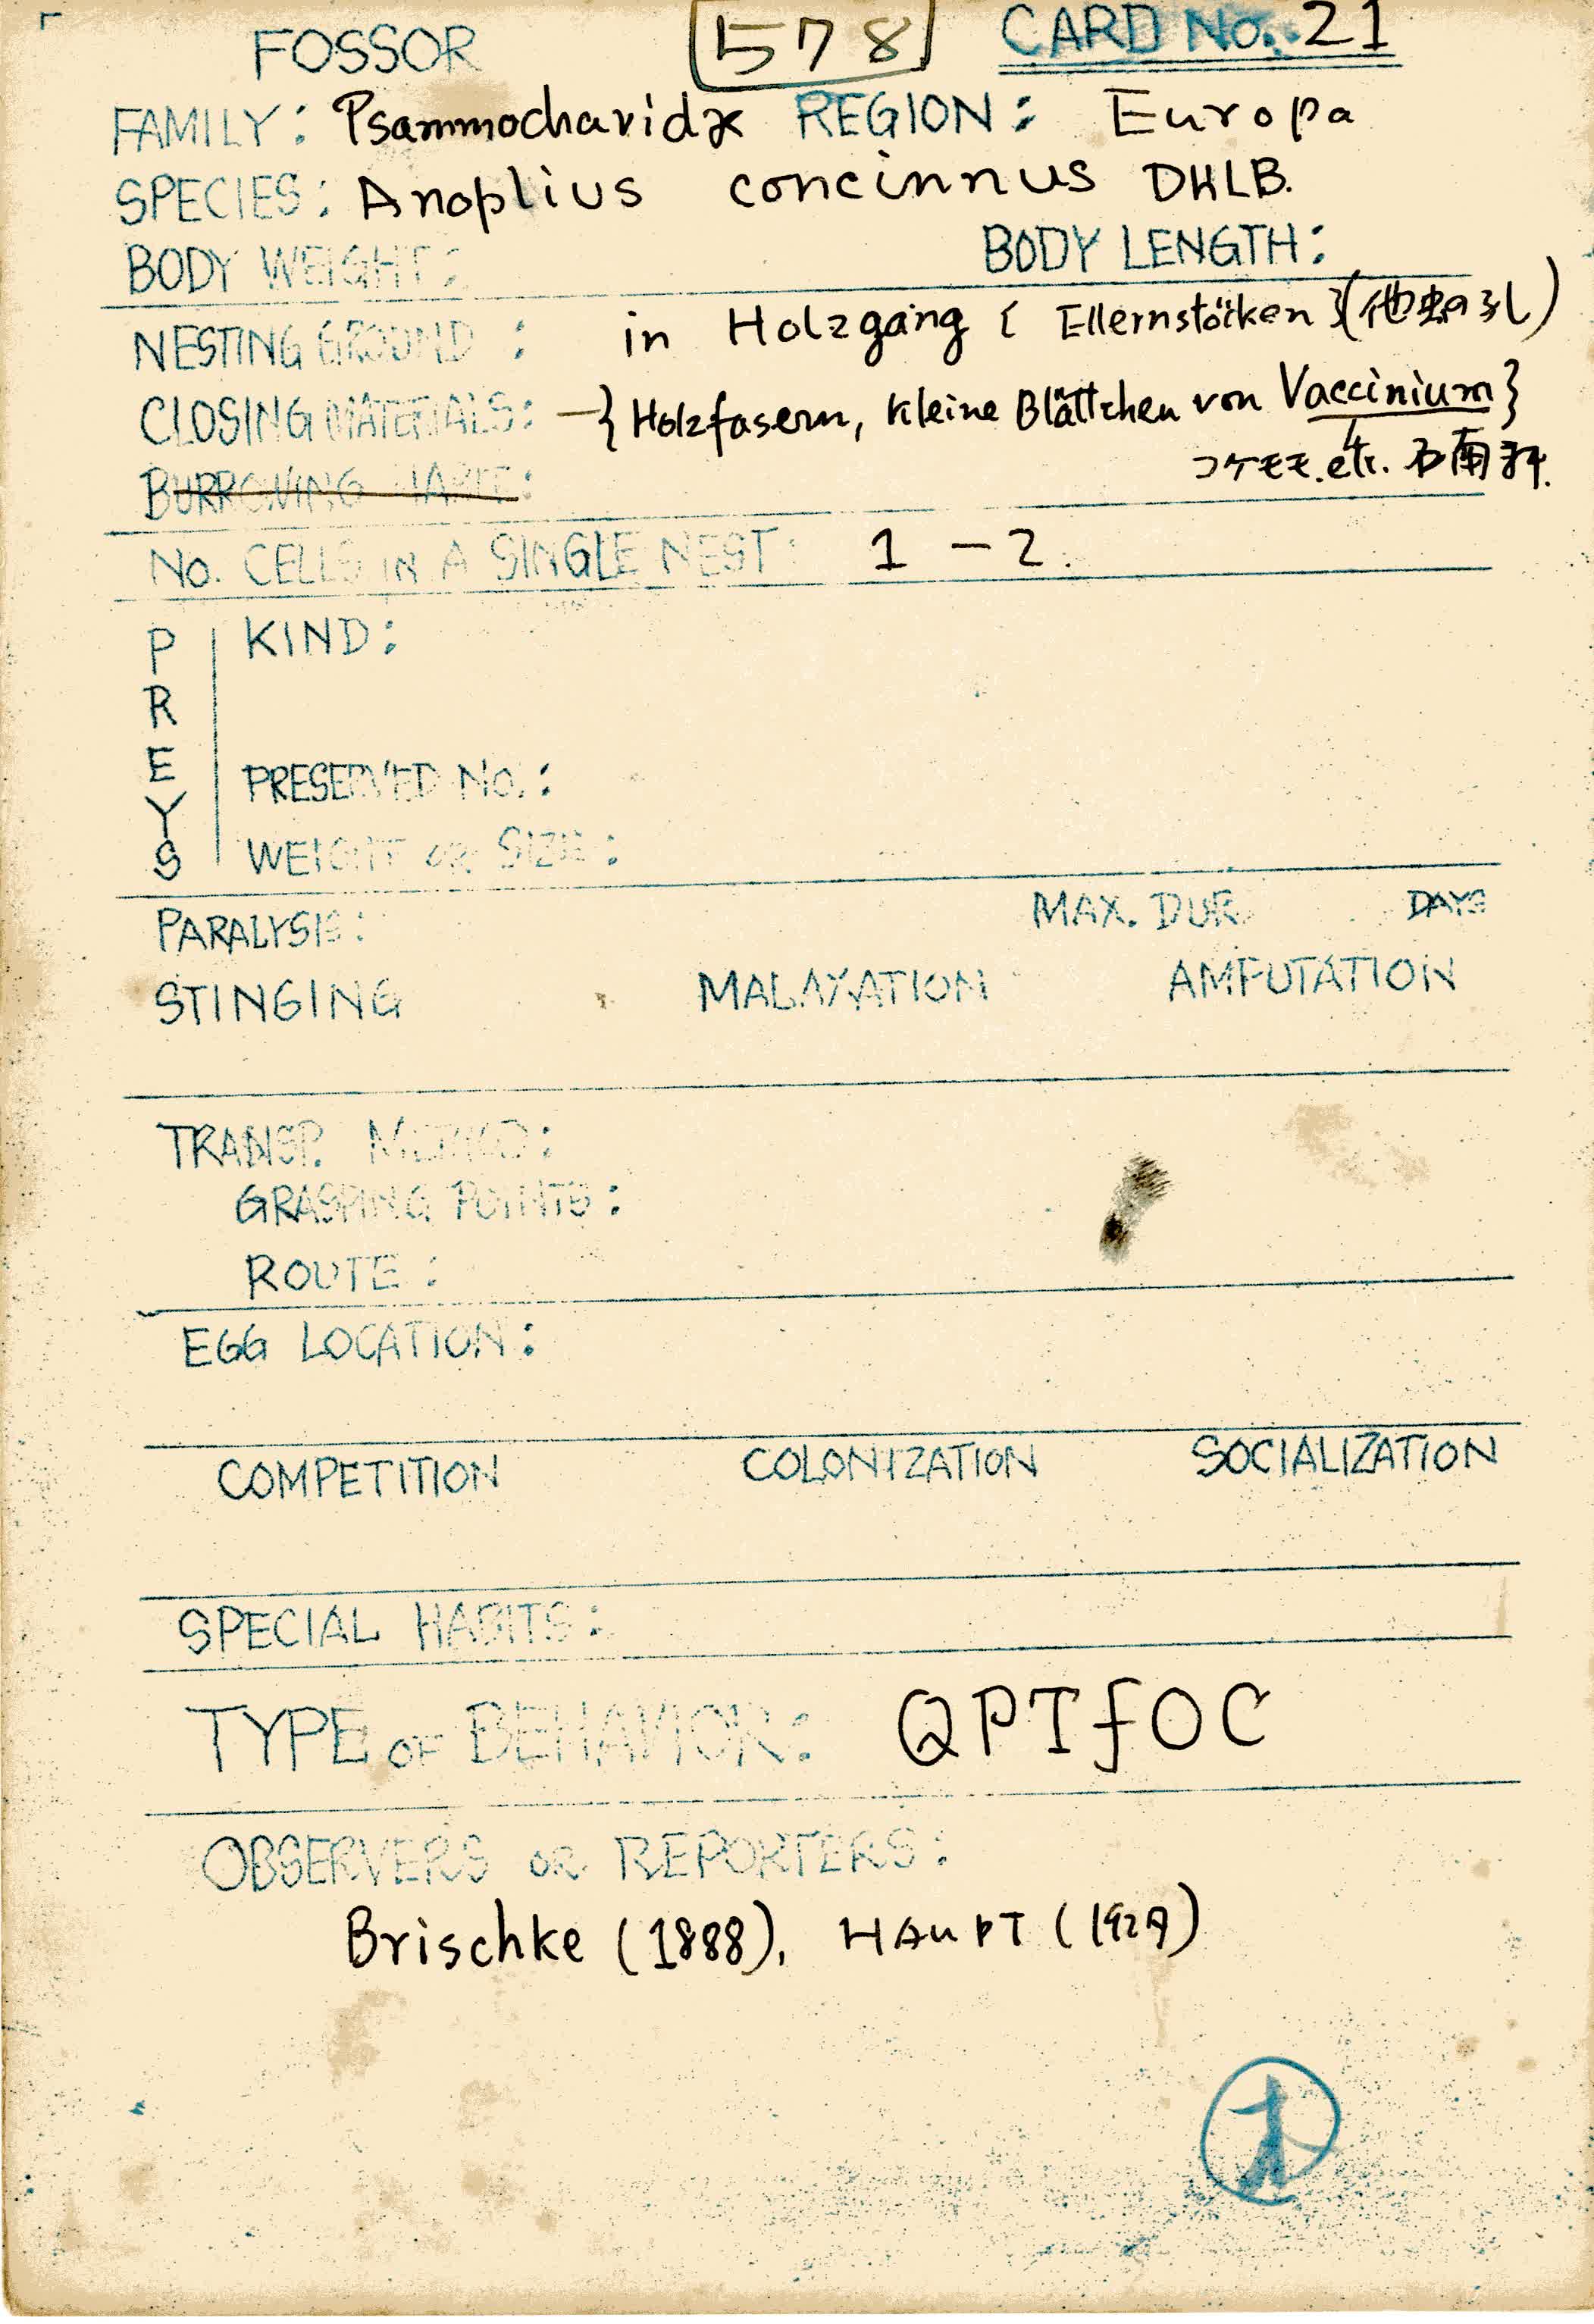 FOSSOR 578 CARD No. 21
FAMILY: Psammocharidæ REGION: Europa
SPECIES: Anoplius concinnus DHLB.
BODY WEIGHT: BODY LENGTH:
NESTING GROUND: in Holzgäng { Ellernstöcken } (他虫の孔)
CLOSING MATERIALS: —{ Holzfasern, Kleine Blättchen von Vaccinium }
コケモモ. etc. 石南科.
BURROWING HABIT:
No. CELLS IN A SINGLE NEST: 1 – 2.
PREYS
KIND:
PRESERVED No.:
WEIGHT OR SIZE:
PARALYSIS: MAX. DUR. DAYS
STINGING MALAXATION AMPUTATION
TRANSP. METHOD:
GRASPING POINTS:
ROUTE:
EGG LOCATION:
COMPETITION COLONIZATION SOCIALIZATION
SPECIAL HABITS:
TYPE OF BEHAVIOR: QPTfOC
OBSERVERS OR REPORTERS:
Brischke (1888), HAUPT (1927)